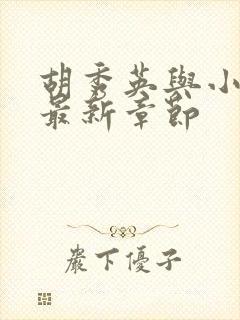 胡秀英與小
最新章節
巖下優子